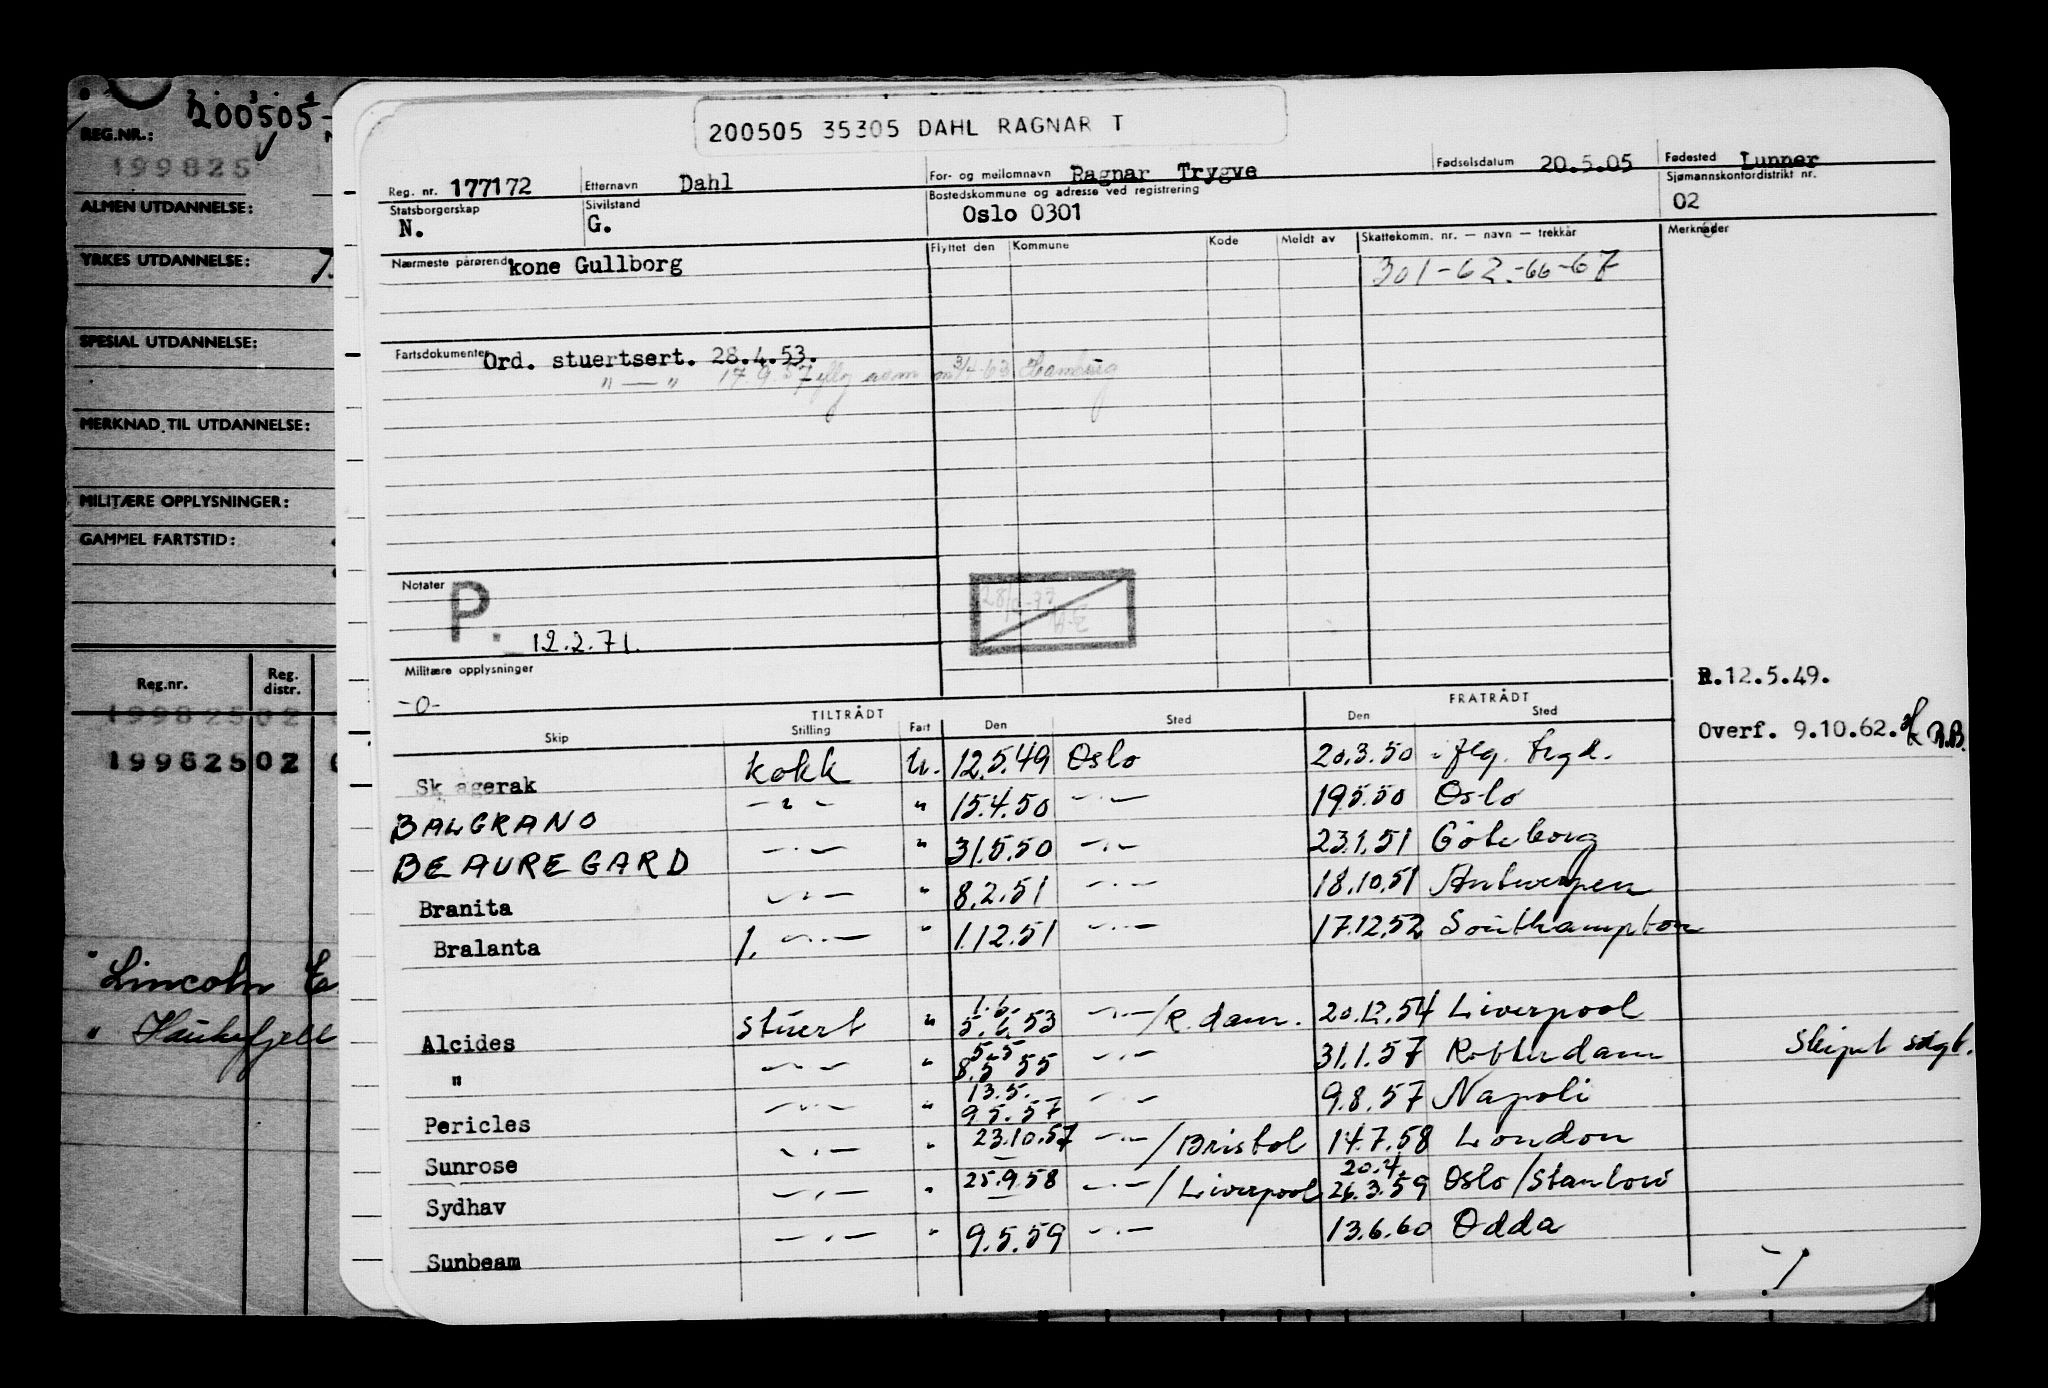 200505
REG.NR.:
199825
ALMEN UTDANNELSE:
YRKES UTDANNELSE:
SPESIAL UTDANNELSE:
MERKNAD TIL UTDANNELSE:
MILITÆRE OPPLYSNINGER:
GAMMEL FARTSTID:
Reg.nr. Reg. distr.
199825 02
199825 02
" Lincoln E
" Haukefjell
200505 35305 DAHL RAGNAR T
Reg. nr. 177172 Etternavn Dahl For- og mellomnavn Ragnar Trygve Fødselsdatum 20.5.05 Fødested Lunner
Statsborgerskap N. Sivilstand G. Bostedskommune og adresse ved registrering Oslo 0301 Sjømannskontordistrikt nr. 02
Nærmeste pårørende kone Gullborg Flyttet den Kommune Kode Meldt av Skattekomm. nr. — navn — trekkår Merknader
301-62-66-67
Fartsdokumenter Ord. stuertsert. 28.4.53.
" — " 17.9.57 3/4-63 Hamburg
Notater
P. 12.2.71.
Militære opplysninger
-0-
R.12.5.49.
Overf. 9.10.62. R.B.
TILTRÅDT FRATRÅDT
Skip Stilling Fart Den Sted Den Sted
Skagerak kokk U. 12.5.49 Oslo 20.3.50
BALGRANO -"- " 15.4.50 -"- 19.5.50 Oslo
BEAUREGARD -"- " 31.5.50 -"- 23.1.51 Göteborg
Branita -"- " 8.2.51 -"- 18.10.51 Antwerpen
Bralanta 1. -"- " 1.12.51 -"- 17.12.52 Southampton
Alcides stuert " 1.6. 5.6.53 -"- /R.dam. 20.12.54 Liverpool
" -"- " 5.5 8.5.55 -"- 31.1.57 Rotterdam Skipet solgt.
Pericles -"- " 13.5. 9.5.57 -"- 9.8.57 Napoli
Sunrose -"- " 23.10.57 -"- /Bristol 14.7.58 London
Sydhav -"- " 25.9.58 -"- /Liverpool 20.4. 26.3.59 Oslo/Stanlow
Sunbeam -"- " 9.5.59 -"- 13.6.60 Odda